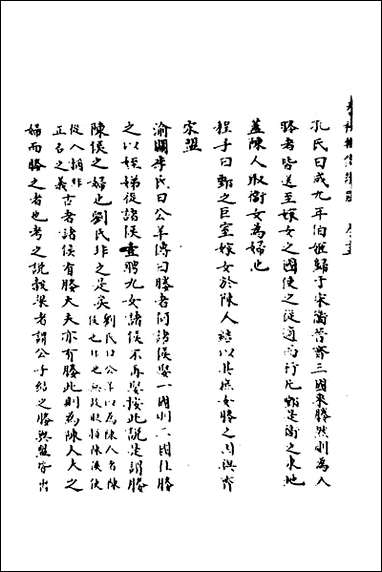 孔氏曰成九年伯姬歸于宋衛晉齊三國來媵然則為人
媵者皆送至嫁女之國使之從適而行凡鄄是衛之東地
蓋陳人取衛女為婦也
程子曰鄄之巨室嫁女於陳人結以其庶女媵之因與齊
宋盟
渝關李氏曰公羊傳曰媵者何諸侯娶一國則二國往媵
之以姪娣從諸侯壹聘九女諸侯不再娶按此說是謂媵
陳侯之婦也劉氏非之是矣劉氏曰公羊以為陳人者陳侯也非也無故貶陳侯使
從人稱非正名之義古者諸侯有媵大夫亦有媵此則為陳人大之
婦而媵之者也考之說穀梁者謂公子結之媵與盟皆出